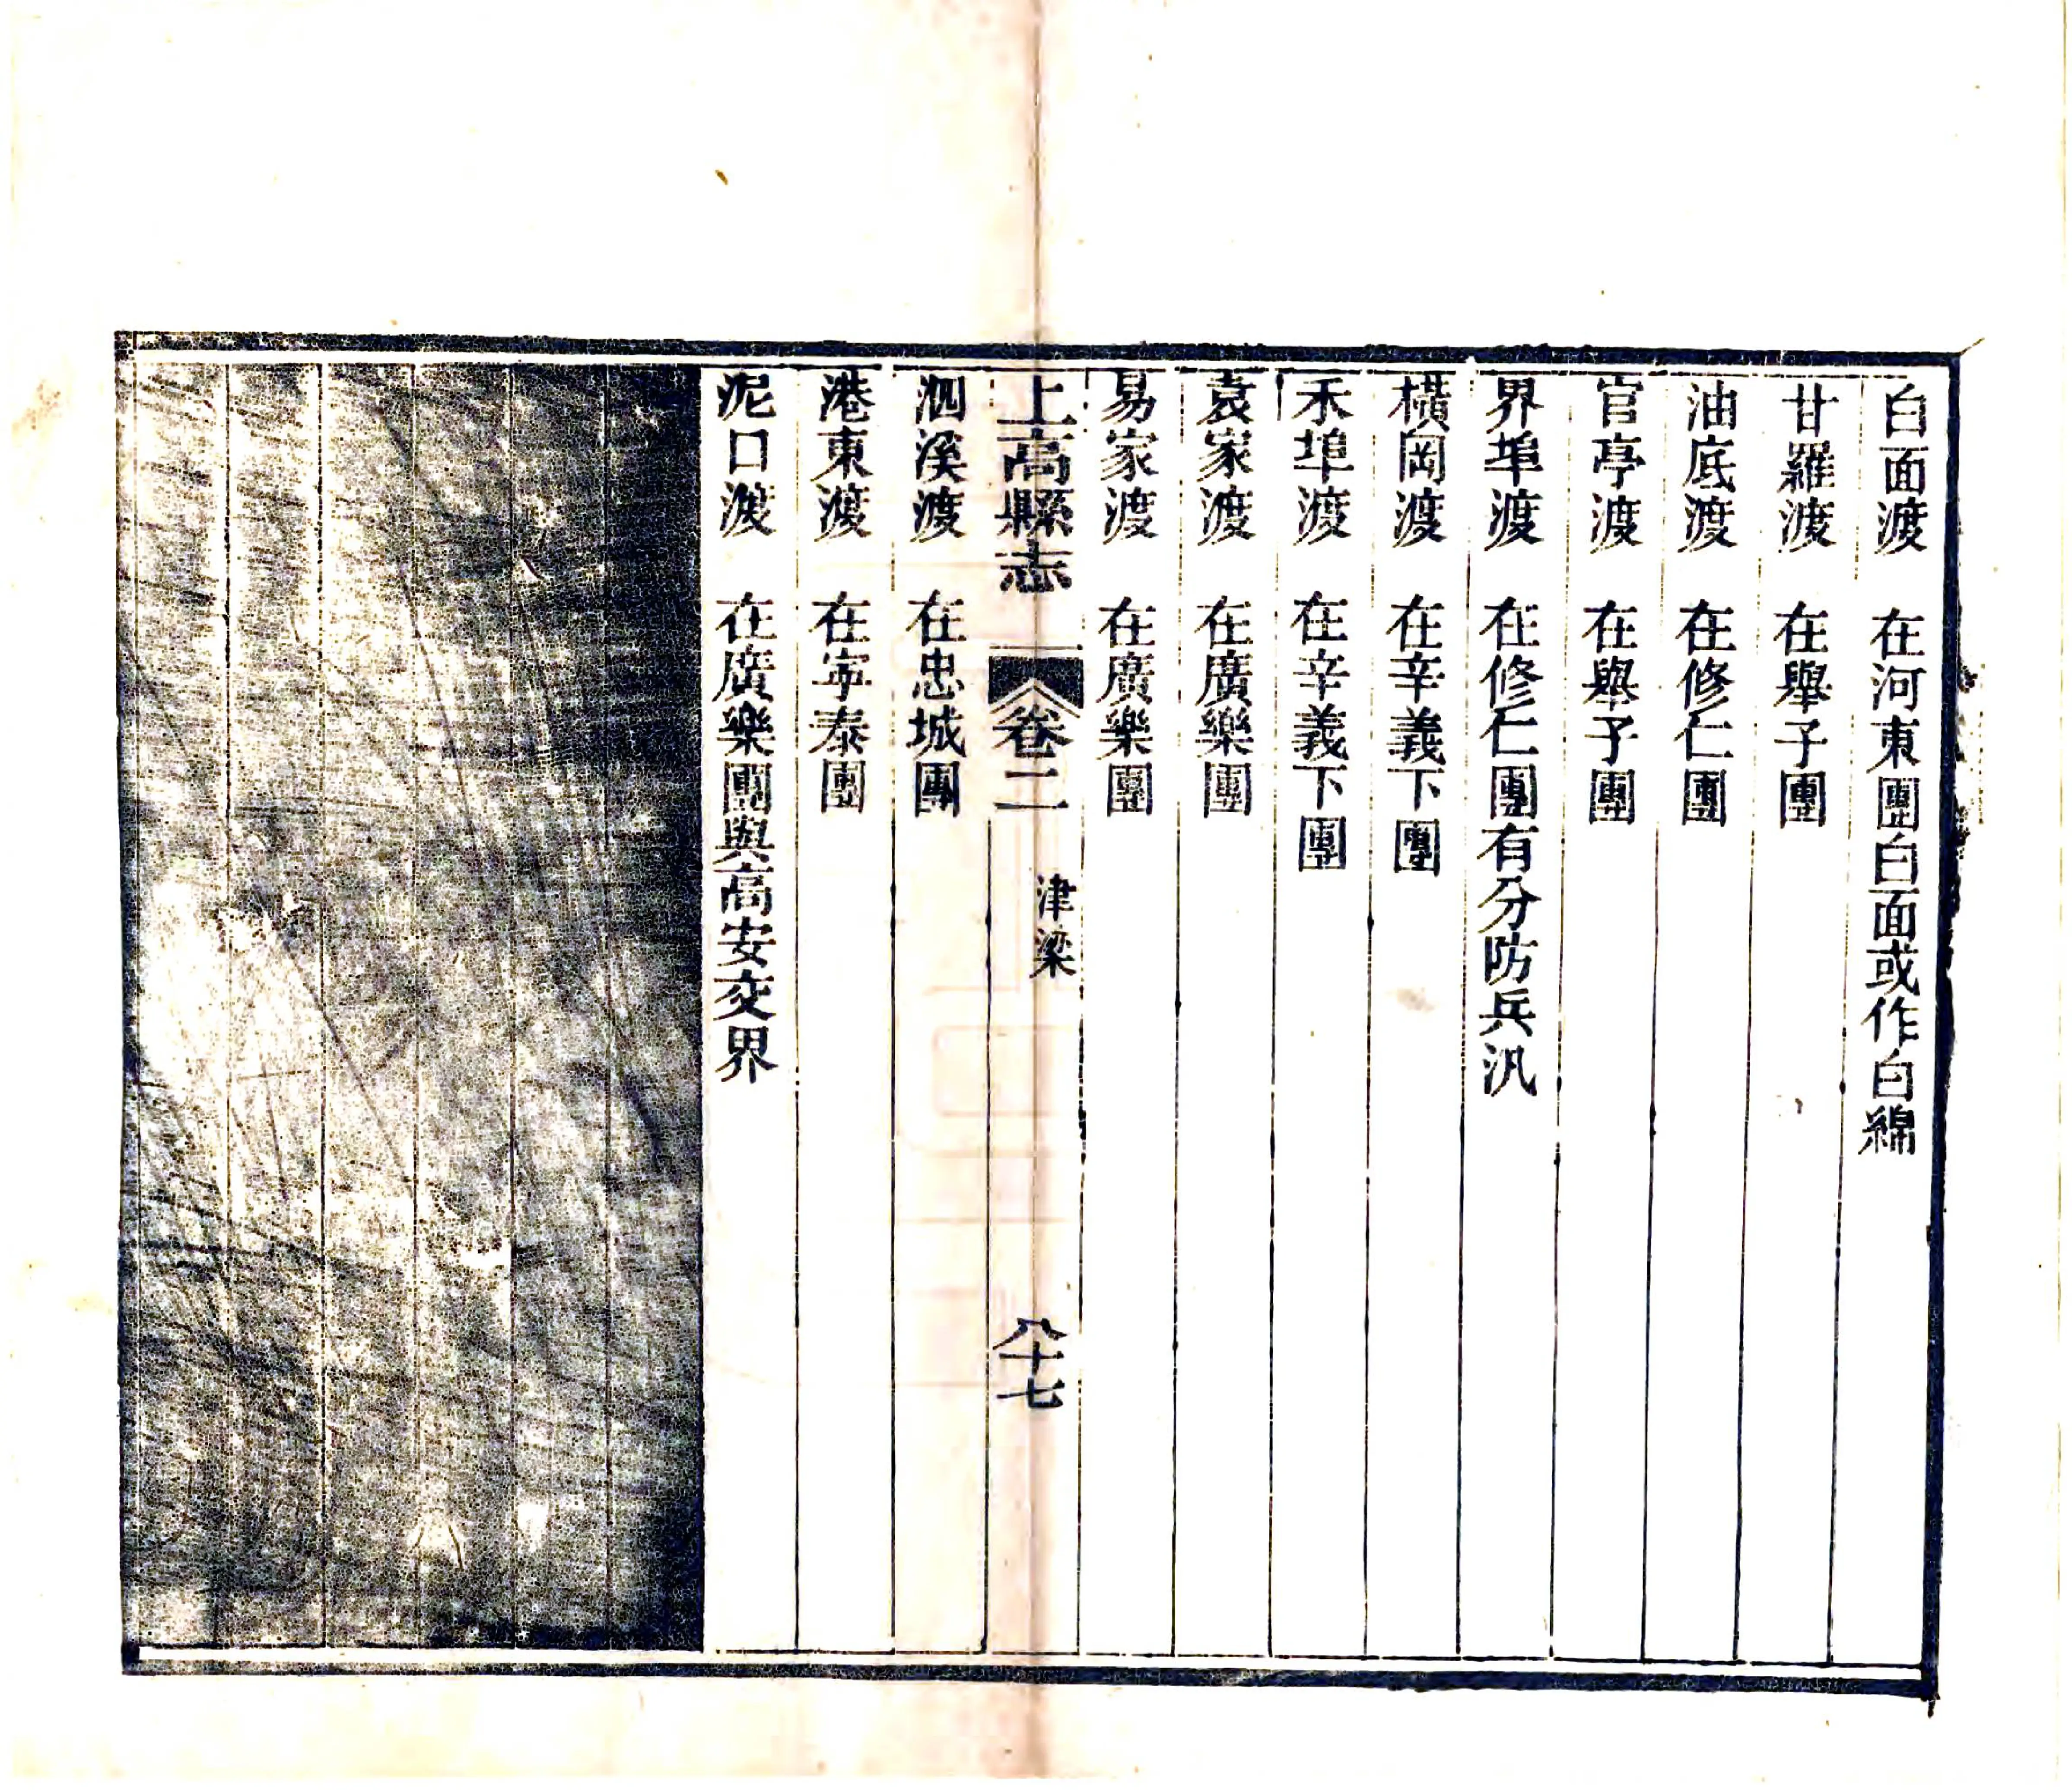 白面渡　在河東團白面或作白綿
甘羅渡　在舉子團
油底渡　在修仁團
官亭渡　在舉予團
界埠渡　在修仁團有分防兵汛
橫岡渡　在辛義下團
禾埠渡　在辛義下團
袁家渡　在廣樂團
易家渡　在廣樂團
上高縣志　卷二　津梁　八十七
泗溪渡　在忠城團
港東渡　在寧泰團
泥口渡　在廣樂團與高安交界